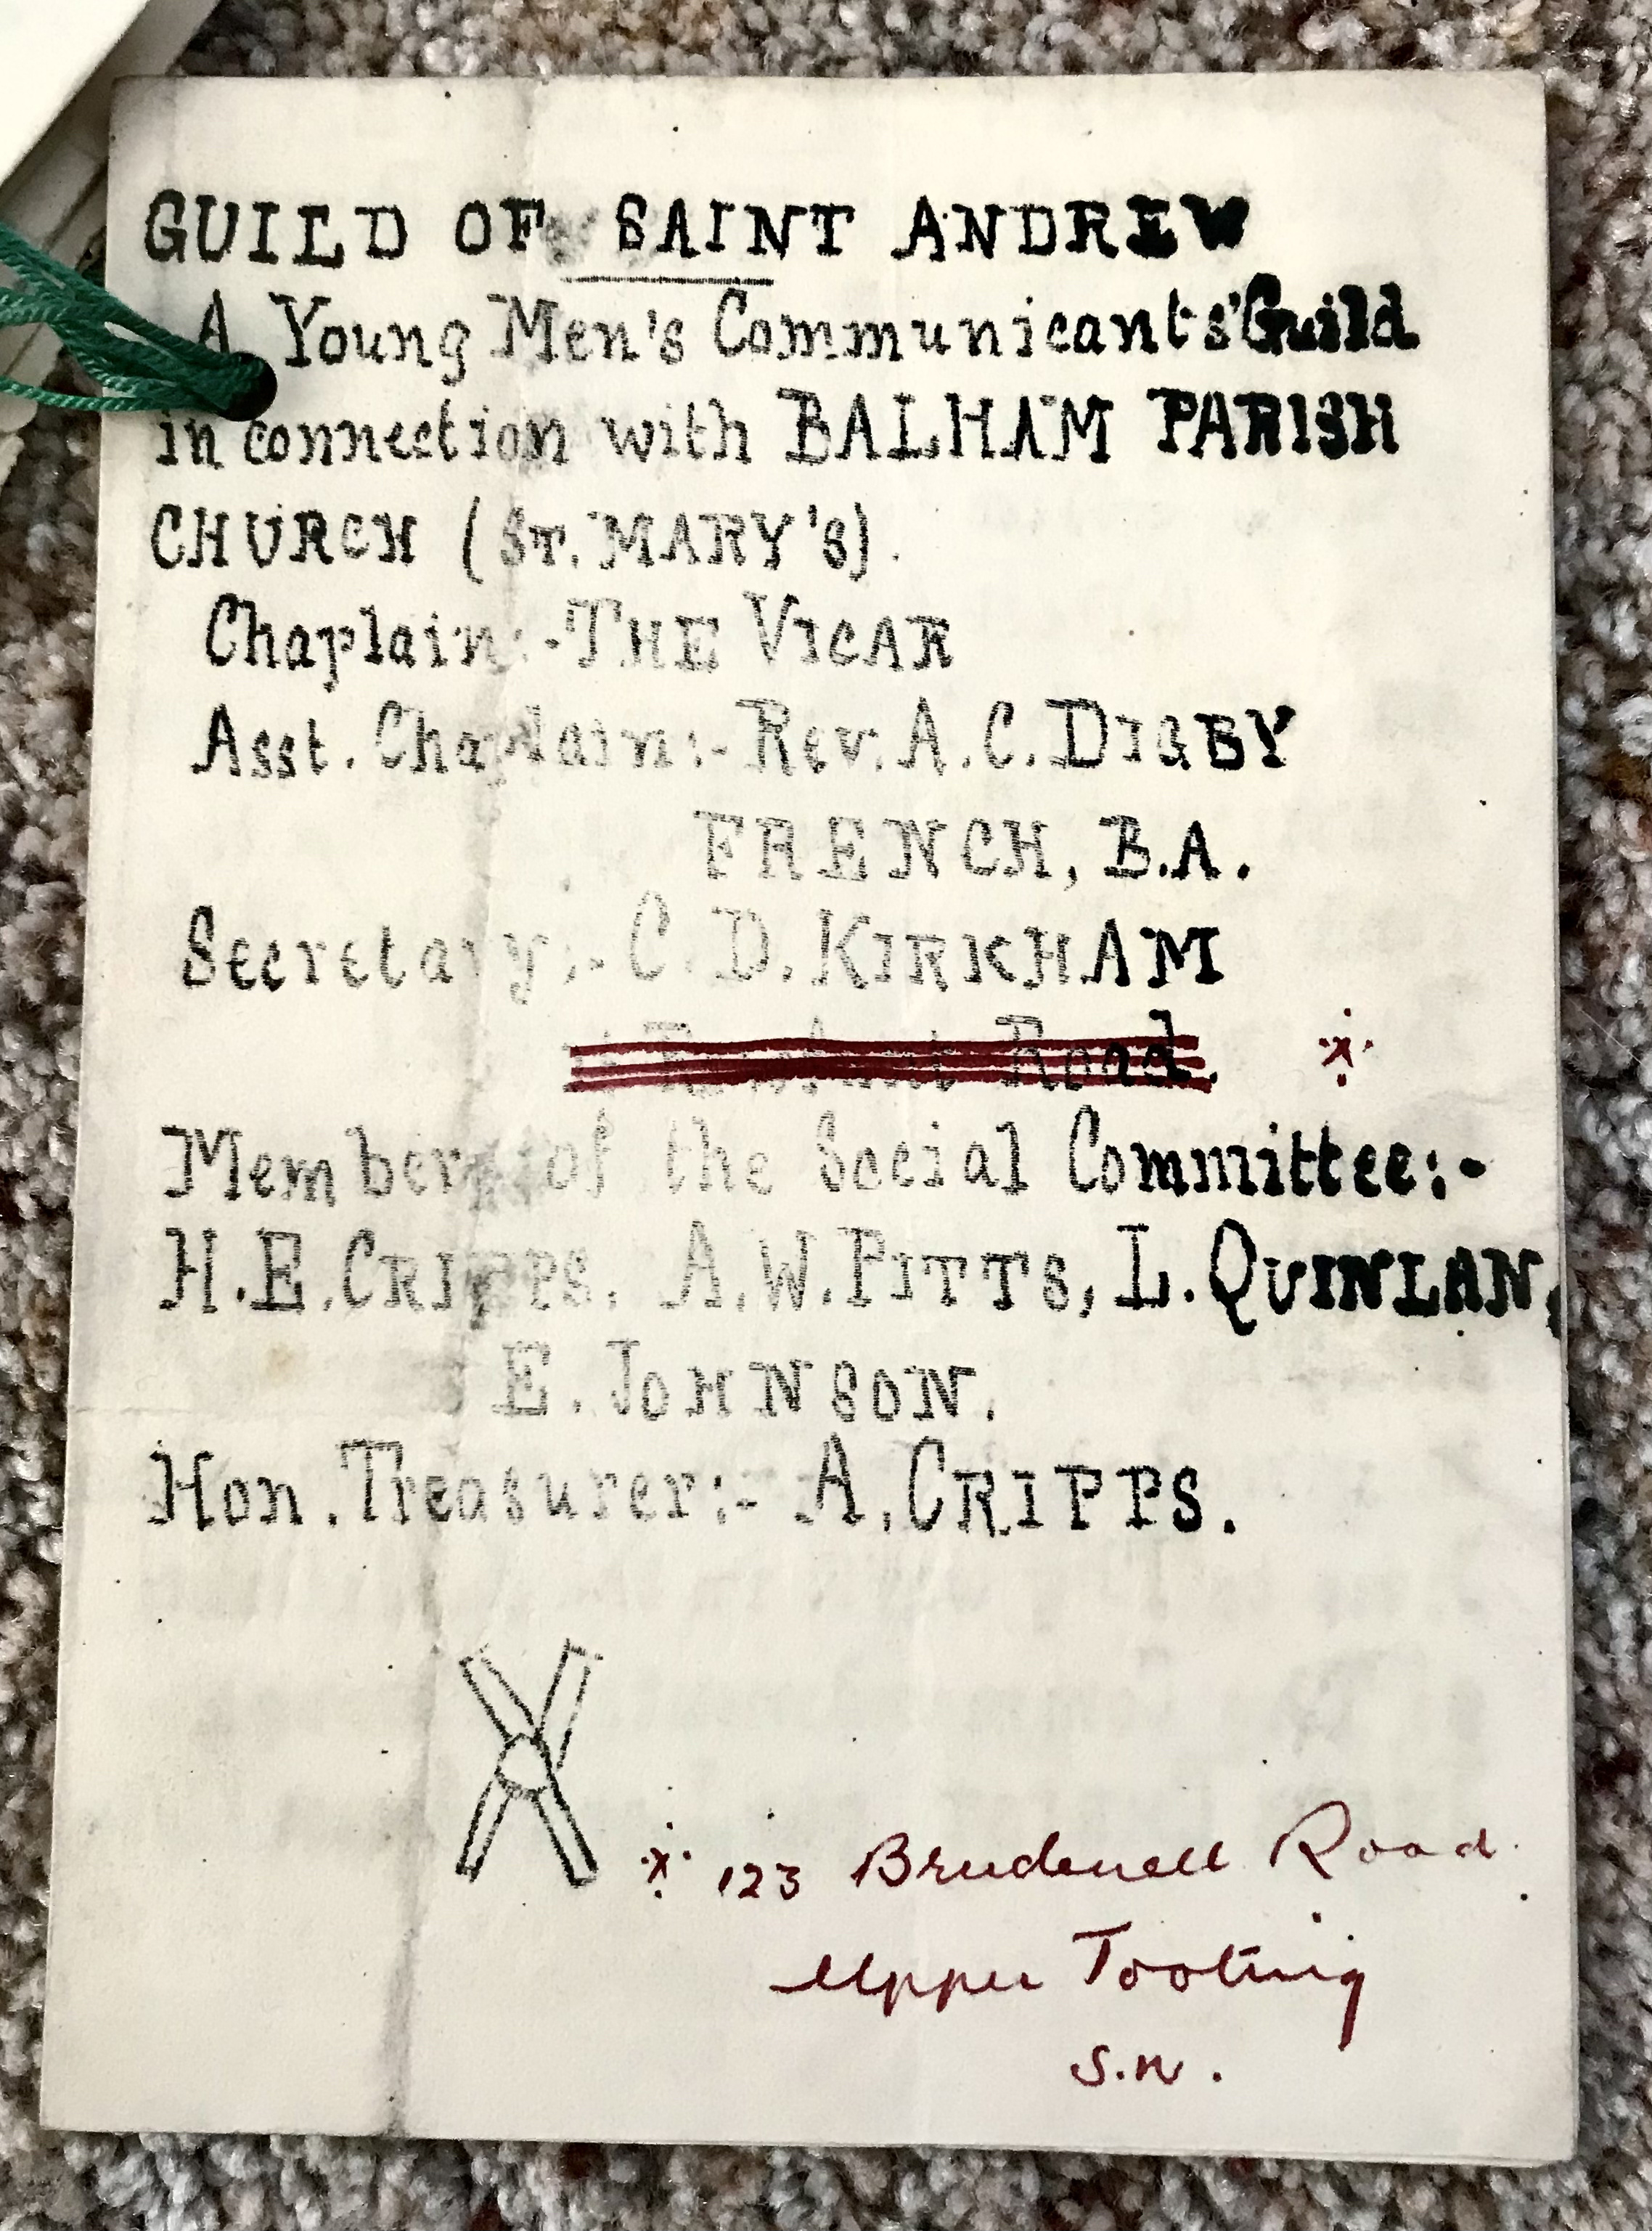 GUILD OF SAINT ANDREW
A Young Men's Communicants' Guild
in connection with BALHAM PARISH
CHURCH (ST. MARY'S).
Chaplain:-THE VICAR
Asst. Chaplain:-Rev. A. C. DIGBY
FRENCH, B.A.
Secretary:- C. D. KIRKHAM
Road.
Members of the Social Committee:-
H.E. CRIPPS, A.W. PITTS, L. QUINLAN,
E. JOHNSON.
Hon. Treasurer:- A. CRIPPS.
123 Brudenell Road
Upper Tooting
S.W.